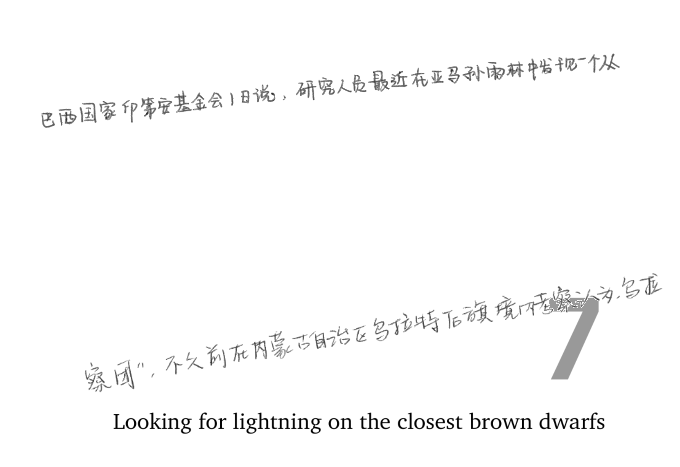 巴西国家印第安基金会1日说，研究人员最近在亚马孙雨林中发现一个从
察团”，不久前在内蒙古自治区乌拉特后旗境内考察认为，乌拉
7
Looking for lightning on the closest brown dwarfs